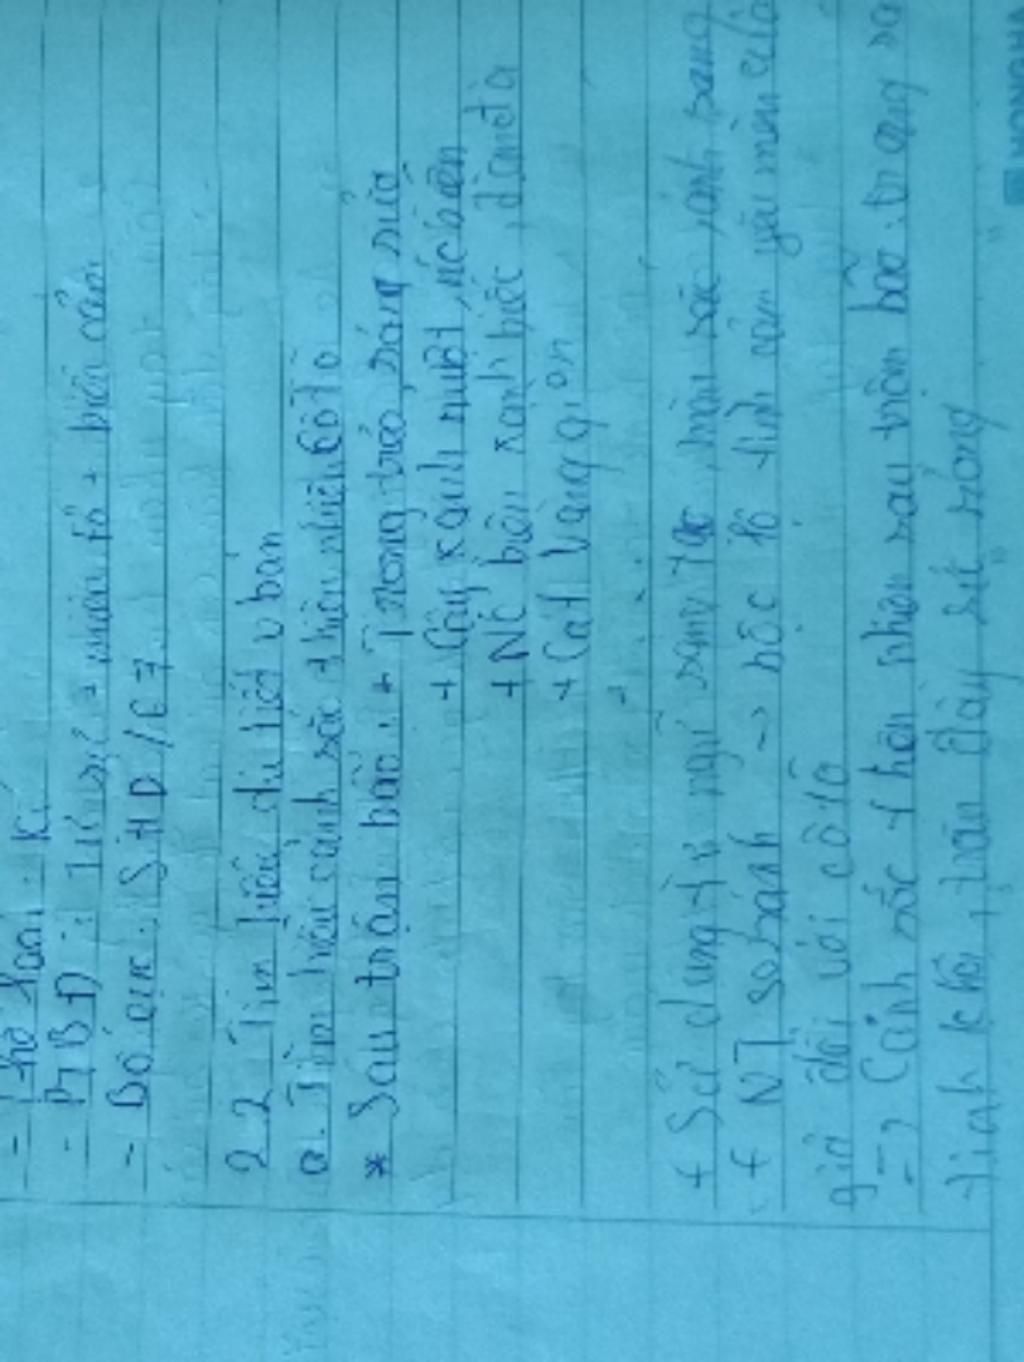 - Thể loại: Kí
- PTBĐ: Tự sự + miêu tả + biểu cảm
- Bố cục: SHD/67
2.2 Tìm hiểu chi tiết v bản
a. Tìm hiểu cảnh sắc thiên nhiên Cô Tô
* Sau trận bão: + Trong trẻo, sáng sủa
+ Cây xanh mượt
+ NC biển xanh biếc, đậm đà
+ Cát vàng giòn
+ Sử dụng từ ngữ
+ NT so sánh -> bộc lộ tình cảm yêu mến của
giả đối với cô tô
=> Cảnh sắc thiên nhiên sau trận bão: trong sá
tinh khôi, tràn đầy sức sống
HONG HA